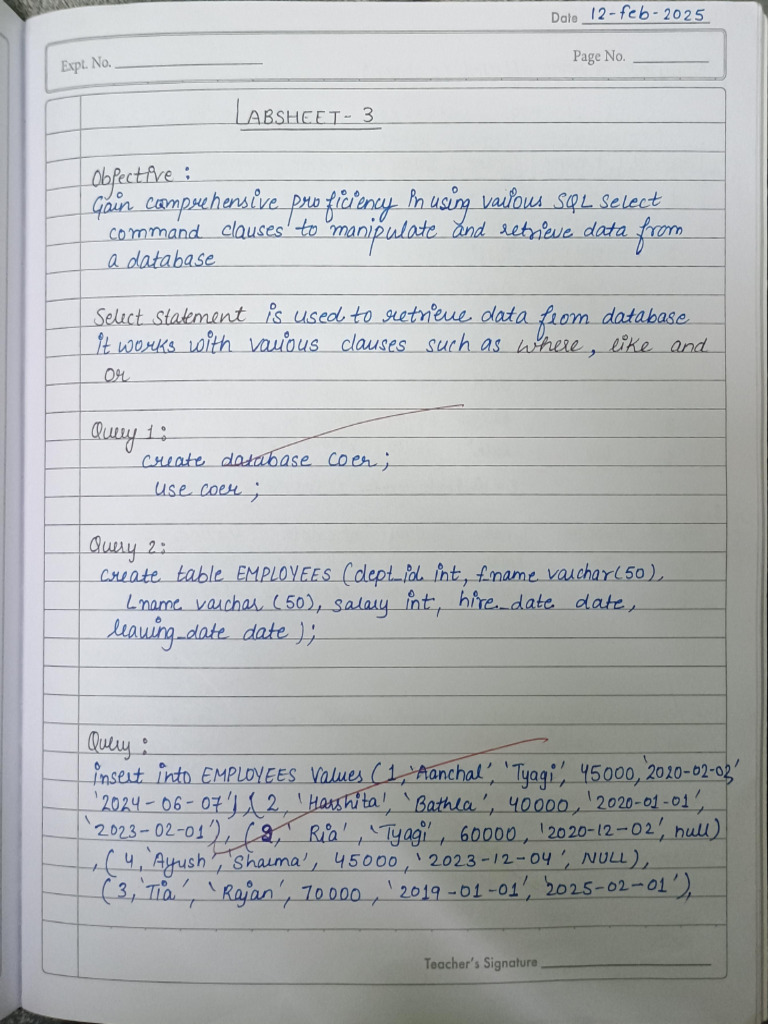 Date 12-feb-2025
Expt. No.
Page No.
LABSHEET- 3
Objective :
Gain comprehensive proficiency in using various SQL select
command clauses to manipulate and retrieve data from
a database
Select statement is used to retrieve data from database
it works with various clauses such as where, like and
or
Query 1:
create database coer;
use coer;
Query 2:
create table EMPLOYEES (dept_id int, fname varchar(50),
Lname varchar (50), salary int, hire_date date,
leaving_date date );
Query :
insert into EMPLOYEES Values (1, 'Aanchal', 'Tyagi', 45000, '2020-02-02'
'2024-06-07'), (2, 'Harshita', 'Bathla', 40000, '2020-01-01',
'2023-02-01'), ( , 'Ria', 'Tyagi', 60000, '2020-12-02', null)
, (4, 'Ayush', 'Sharma', 45000, '2023-12-04', NULL),
(3, 'Tia', 'Rajan', 70000, '2019-01-01', '2025-02-01'),
Teacher's Signature